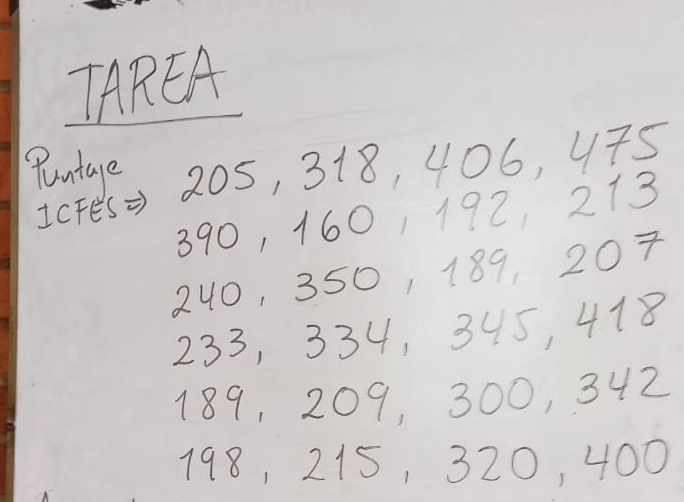 TAREA
Puntaje
ICFES⇒ 205, 318, 406, 475
390, 160, 192, 213
240, 350, 189, 207
233, 334, 345, 418
189, 209, 300, 342
198, 215, 320, 400